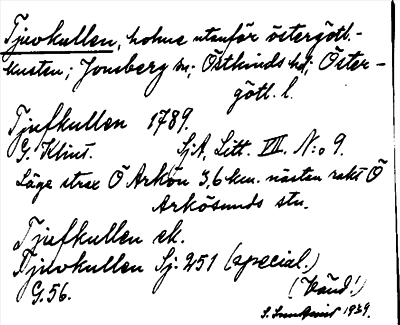 Tjuvkullen, holme utanför östergötl.-
kusten; Jonsberg sn; Östkinds hd; Öster-
götl. l.
Tjufkullen 1789.
G. Klint. SjA, Litt. VII. N:o 9.
Läge strax Ö Arkön 3,6 km. nästan rakt Ö
Arkösunds stn.
Tjufkullen ek.
Tjuvkullen Sj. 251 (special.)
G. 56. (känd!)
1939.